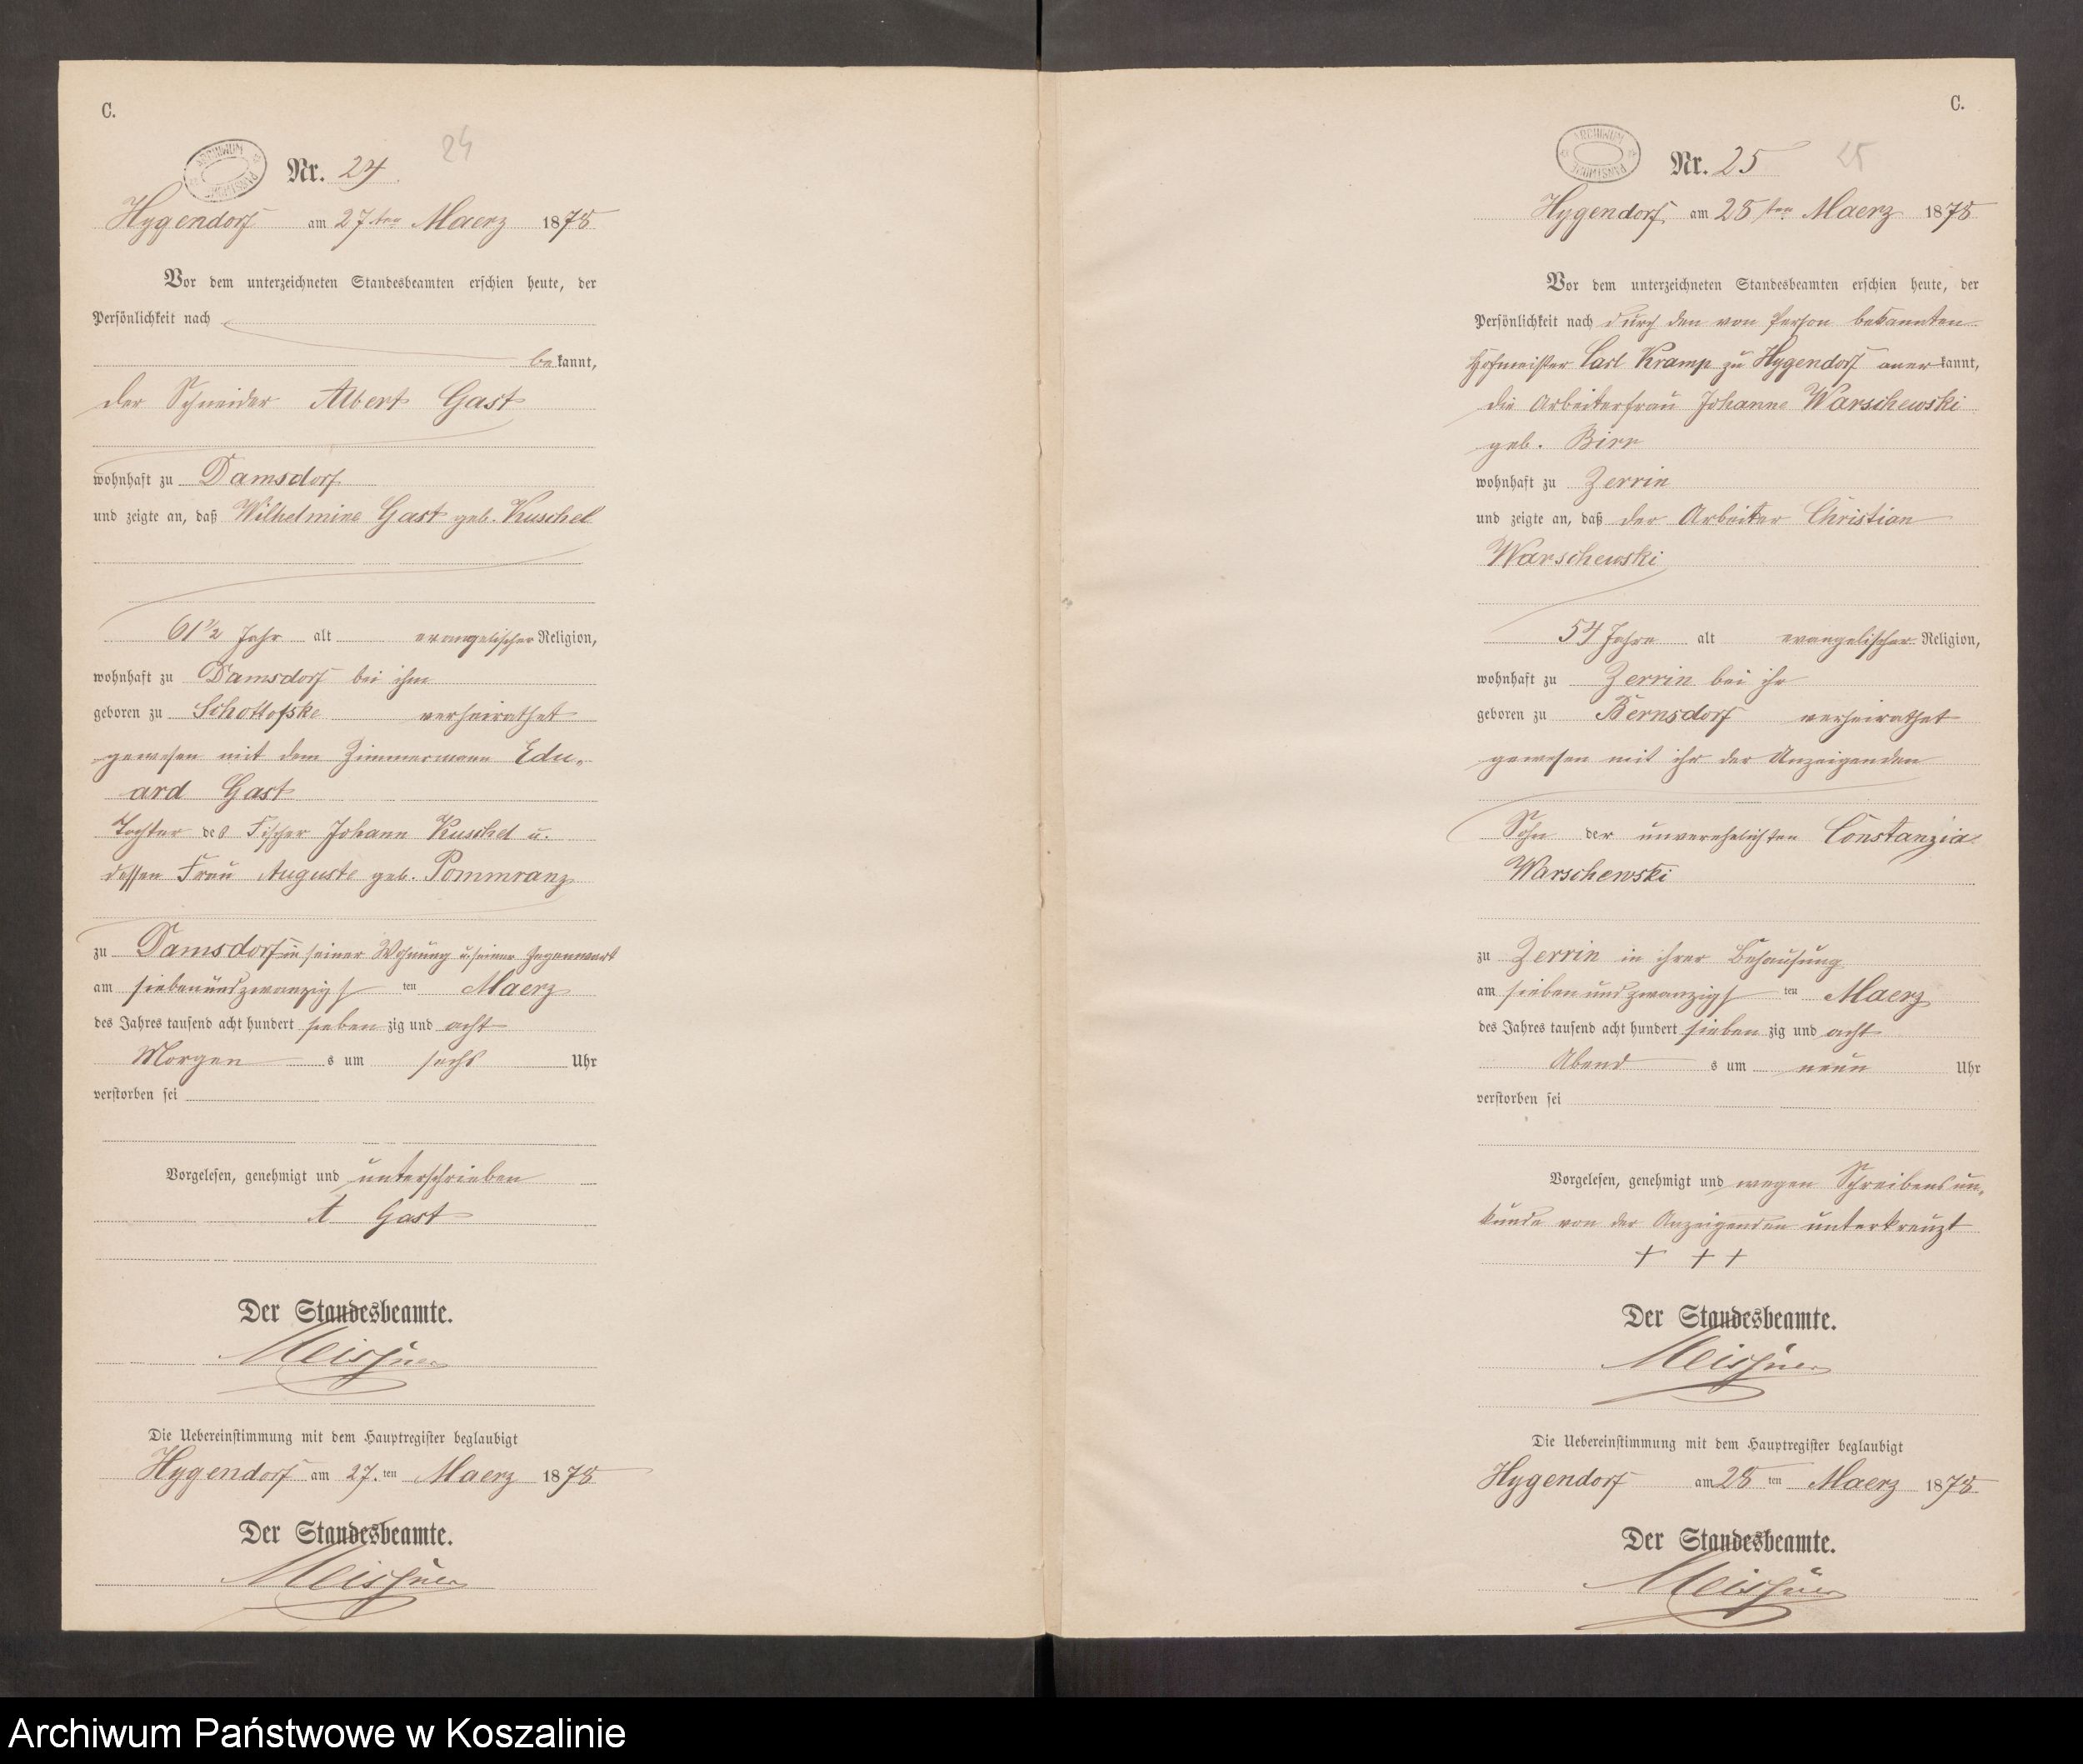 C.
Nr. 24
24
Hygendorf am 27ten Maerz 1878
Vor dem unterzeichneten Standesbeamten erschien heute, der
Persönlichkeit nach
bekannt,
der Schneider Albert Gast
wohnhaft zu Damsdorf
und zeigte an, daß Wilhelmine Gast geb. Kuschel
61 1/2 Jahr alt evangelischer Religion,
wohnhaft zu Damsdorf bei ihm
geboren zu Schottofske verheirathet
gewesen mit dem Zimmermann Edu„
ard Gast
Tochter des Fischer Johann Kuschel u.
dessen Frau Auguste geb. Pommranz
zu Damsdorf in seiner Wohnung u. seiner Gegenwart
am siebenundzwanzigs ten Maerz
des Jahres tausend acht hundert sieben zig und acht
Morgen s um sechs Uhr
verstorben sei
Vorgelesen, genehmigt und unterschrieben
A Gast
Der Standesbeamte.
Meissner
Die Uebereinstimmung mit dem Hauptregister beglaubigt
Hygendorf am 27. ten Maerz 1878
Der Standesbeamte.
Meissner
C.
ARCHIWUM PAŃSTWOWE
Nr. 25
25
Hygendorf am 28ten Maerz 1878
Vor dem unterzeichneten Standesbeamten erschien heute, der
Persönlichkeit nach durch den von Person bekannten
Hofmeister Carl Kramp zu Hygendorf anerkannt,
die Arbeiterfrau Johanne Warschewski
geb. Birr
wohnhaft zu Zerrin
und zeigte an, daß der Arbeiter Christian
Warschewski
54 Jahre alt evangelischer Religion,
wohnhaft zu Zerrin bei ihr
geboren zu Bernsdorf verheirathet
gewesen mit ihr der Anzeigenden
Sohn der unverehelichten Constanzia
Warschewski
zu Zerrin in ihrer Behausung
am siebenundzwanzigs ten Maerz
des Jahres tausend acht hundert sieben zig und acht
Abend s um neun Uhr
verstorben sei
Vorgelesen, genehmigt und wegen Schreibensun„
kunde von der Anzeigenden unterkreuzt
+ + +
Der Standesbeamte.
Meissner
Die Uebereinstimmung mit dem Hauptregister beglaubigt
Hygendorf am 28 ten Maerz 1878
Der Standesbeamte.
Meissner
Archiwum Państwowe w Koszalinie